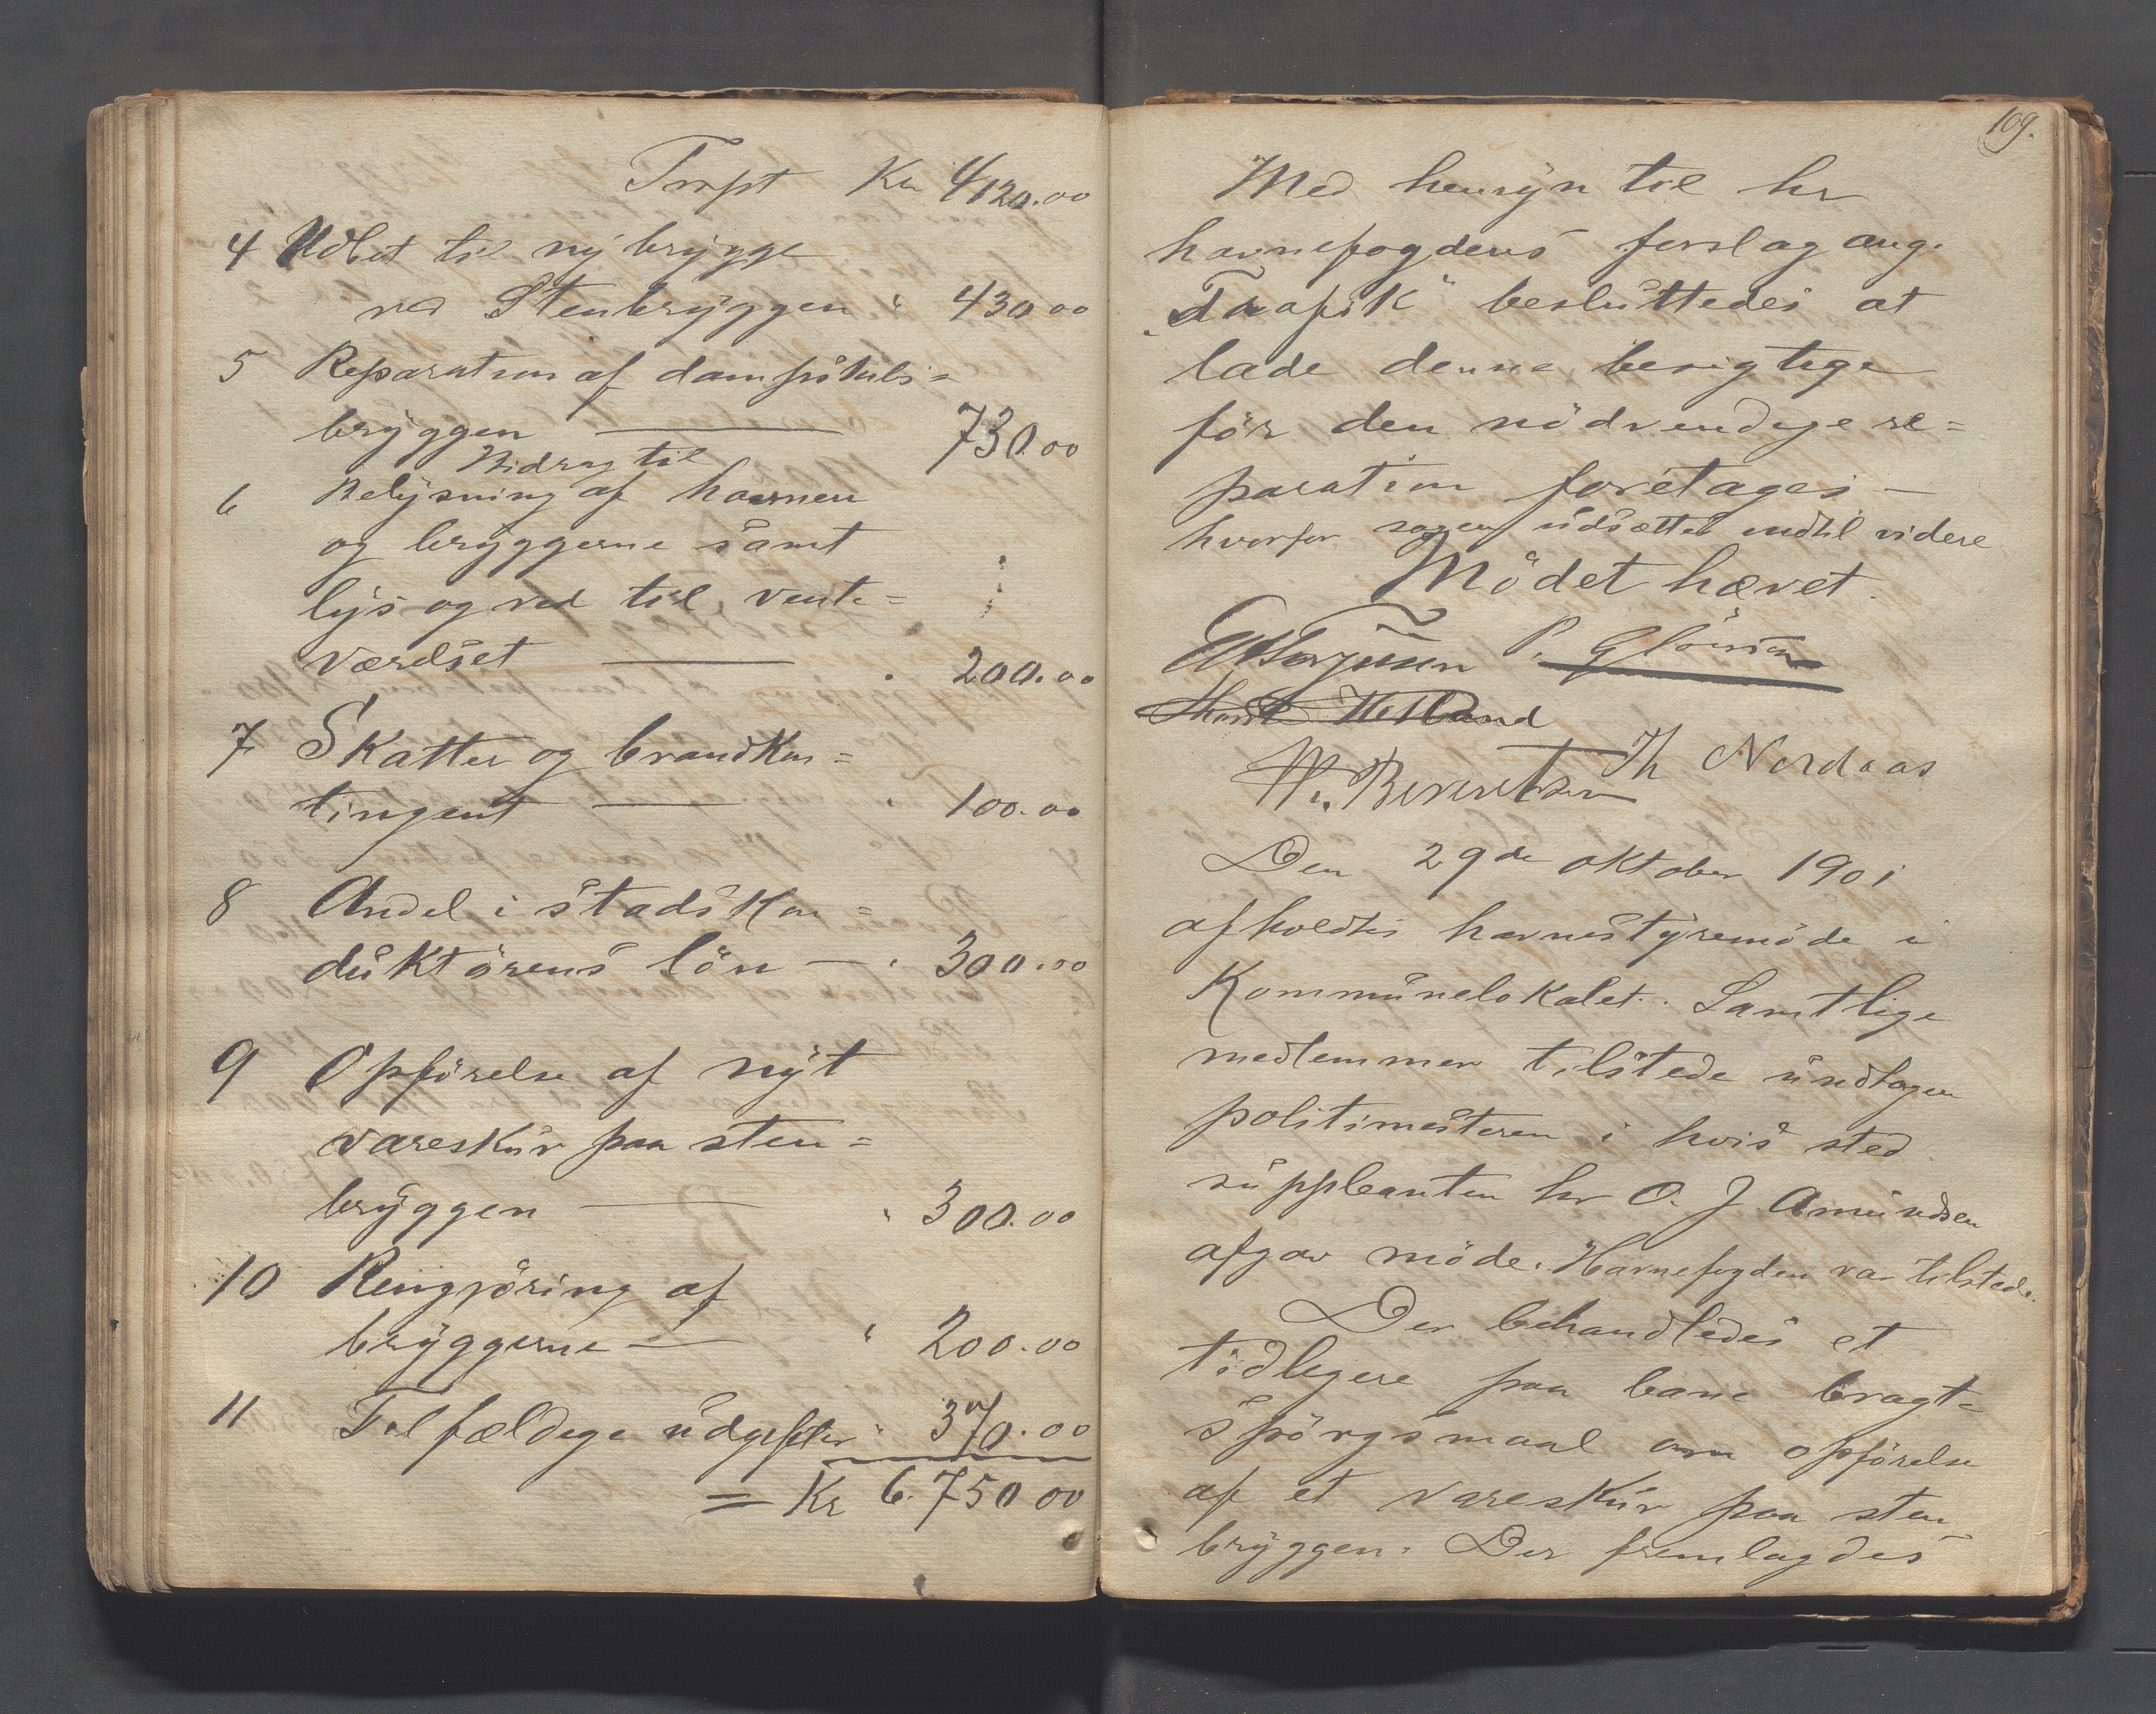 Trspt Kr 4120.00
4 Udlæt til ny brygge
ved Stenbryggen " 430 00
5 Reparation af dampskibs=
bryggen — 730.00
Bidrag til
6 Belysning af havnen
og bryggerne samt
lys og ved til vente=
værelset — " 200.00
7 Skatter og brandkon=
tingent — " 100.00
8 Andel i stadskon=
duktørens løn — " 300.00
9 Opførelse af nyt
vareskur paa sten=
bryggen — " 300.00
10 Rengjøring af
bryggerne — " 200.00
11 Tilfældige udgifter " 370.00
= Kr 6.750 00
109.
Med hensyn til hr
havnefogdens forslag ang.
"Trafik" besluttedes at
lade denne besigtige
før den nødvendige re=
paration foretages —
hvorfor sagen udsættes indtil videre
Mødet hævet.
P.
Hesland
Th Nordaas
W. Berentsen
Den 29de oktober 1901
afholdtes havnestyremøde i
Kommunelokalet. Samtlige
medlemmer tilstede undtagen
politimesteren i hvis sted
suppleanten hr O. J. Amundsen
afgav møde. Havnefogden var tilstede.
Der behandledes et
tidligere paa bane bragt
spørgsmaal om opførelse
af et vareskur paa sten
bryggen. Der fremlagdes